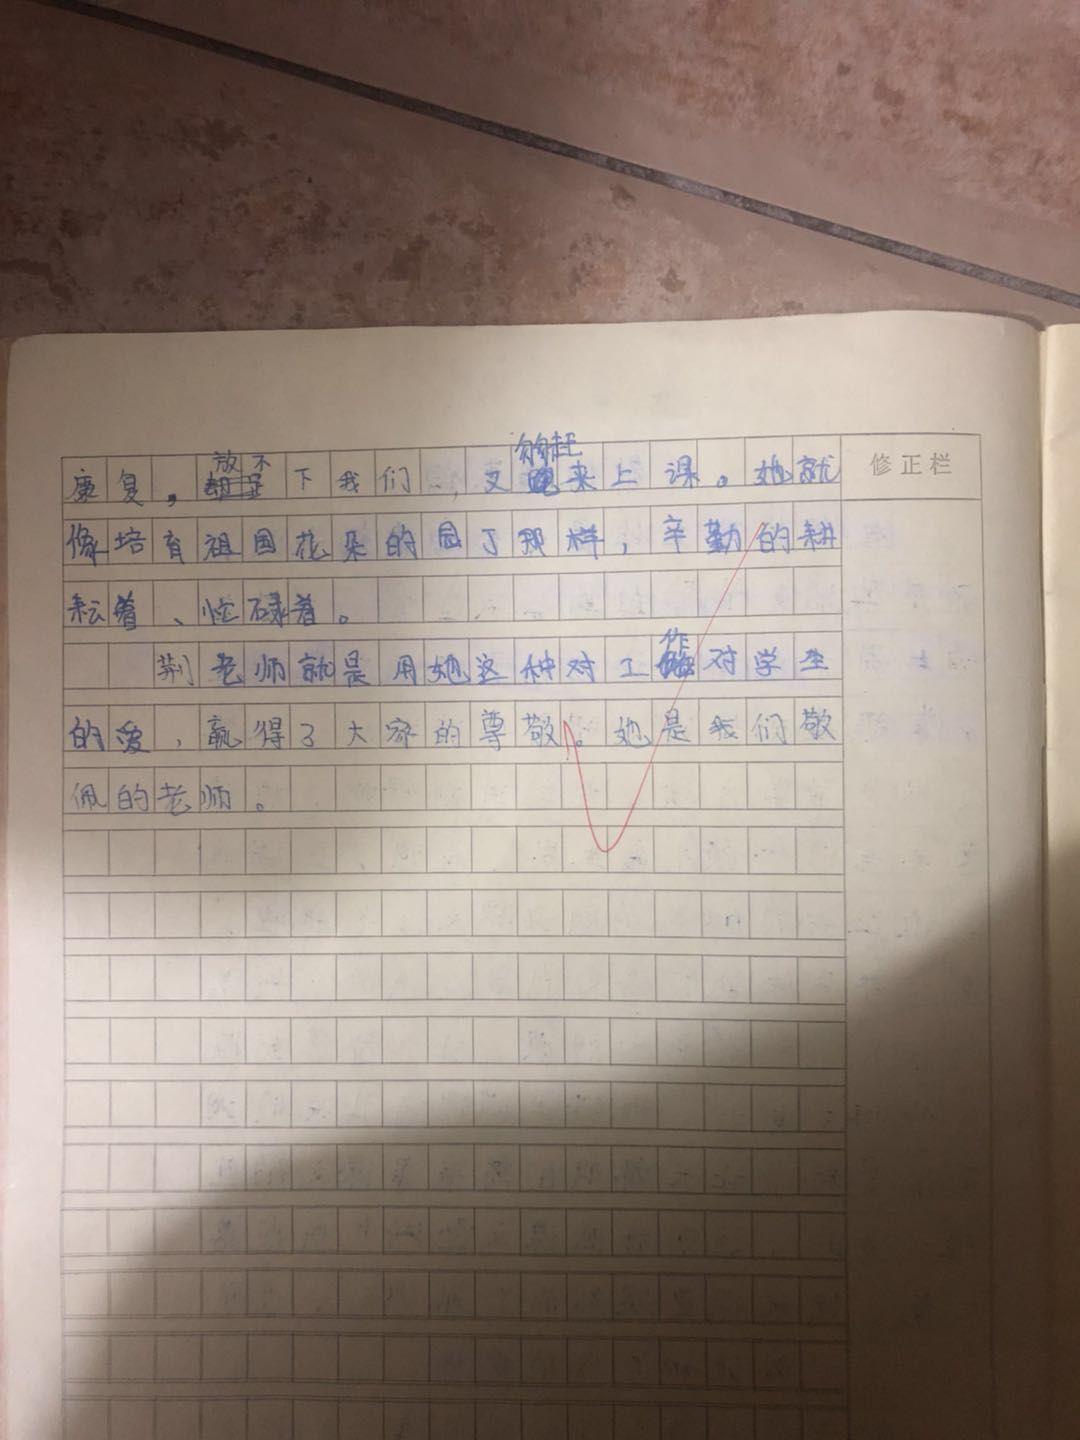 康复，放不下我们，又匆匆赶来上课。她就
修正栏
像培育祖国花朵的园丁那样，辛勤的耕
耘着、忙碌着。
荆老师就是用她这种对工作对学生
的爱，赢得了大家的尊敬。她是我们敬
佩的老师。